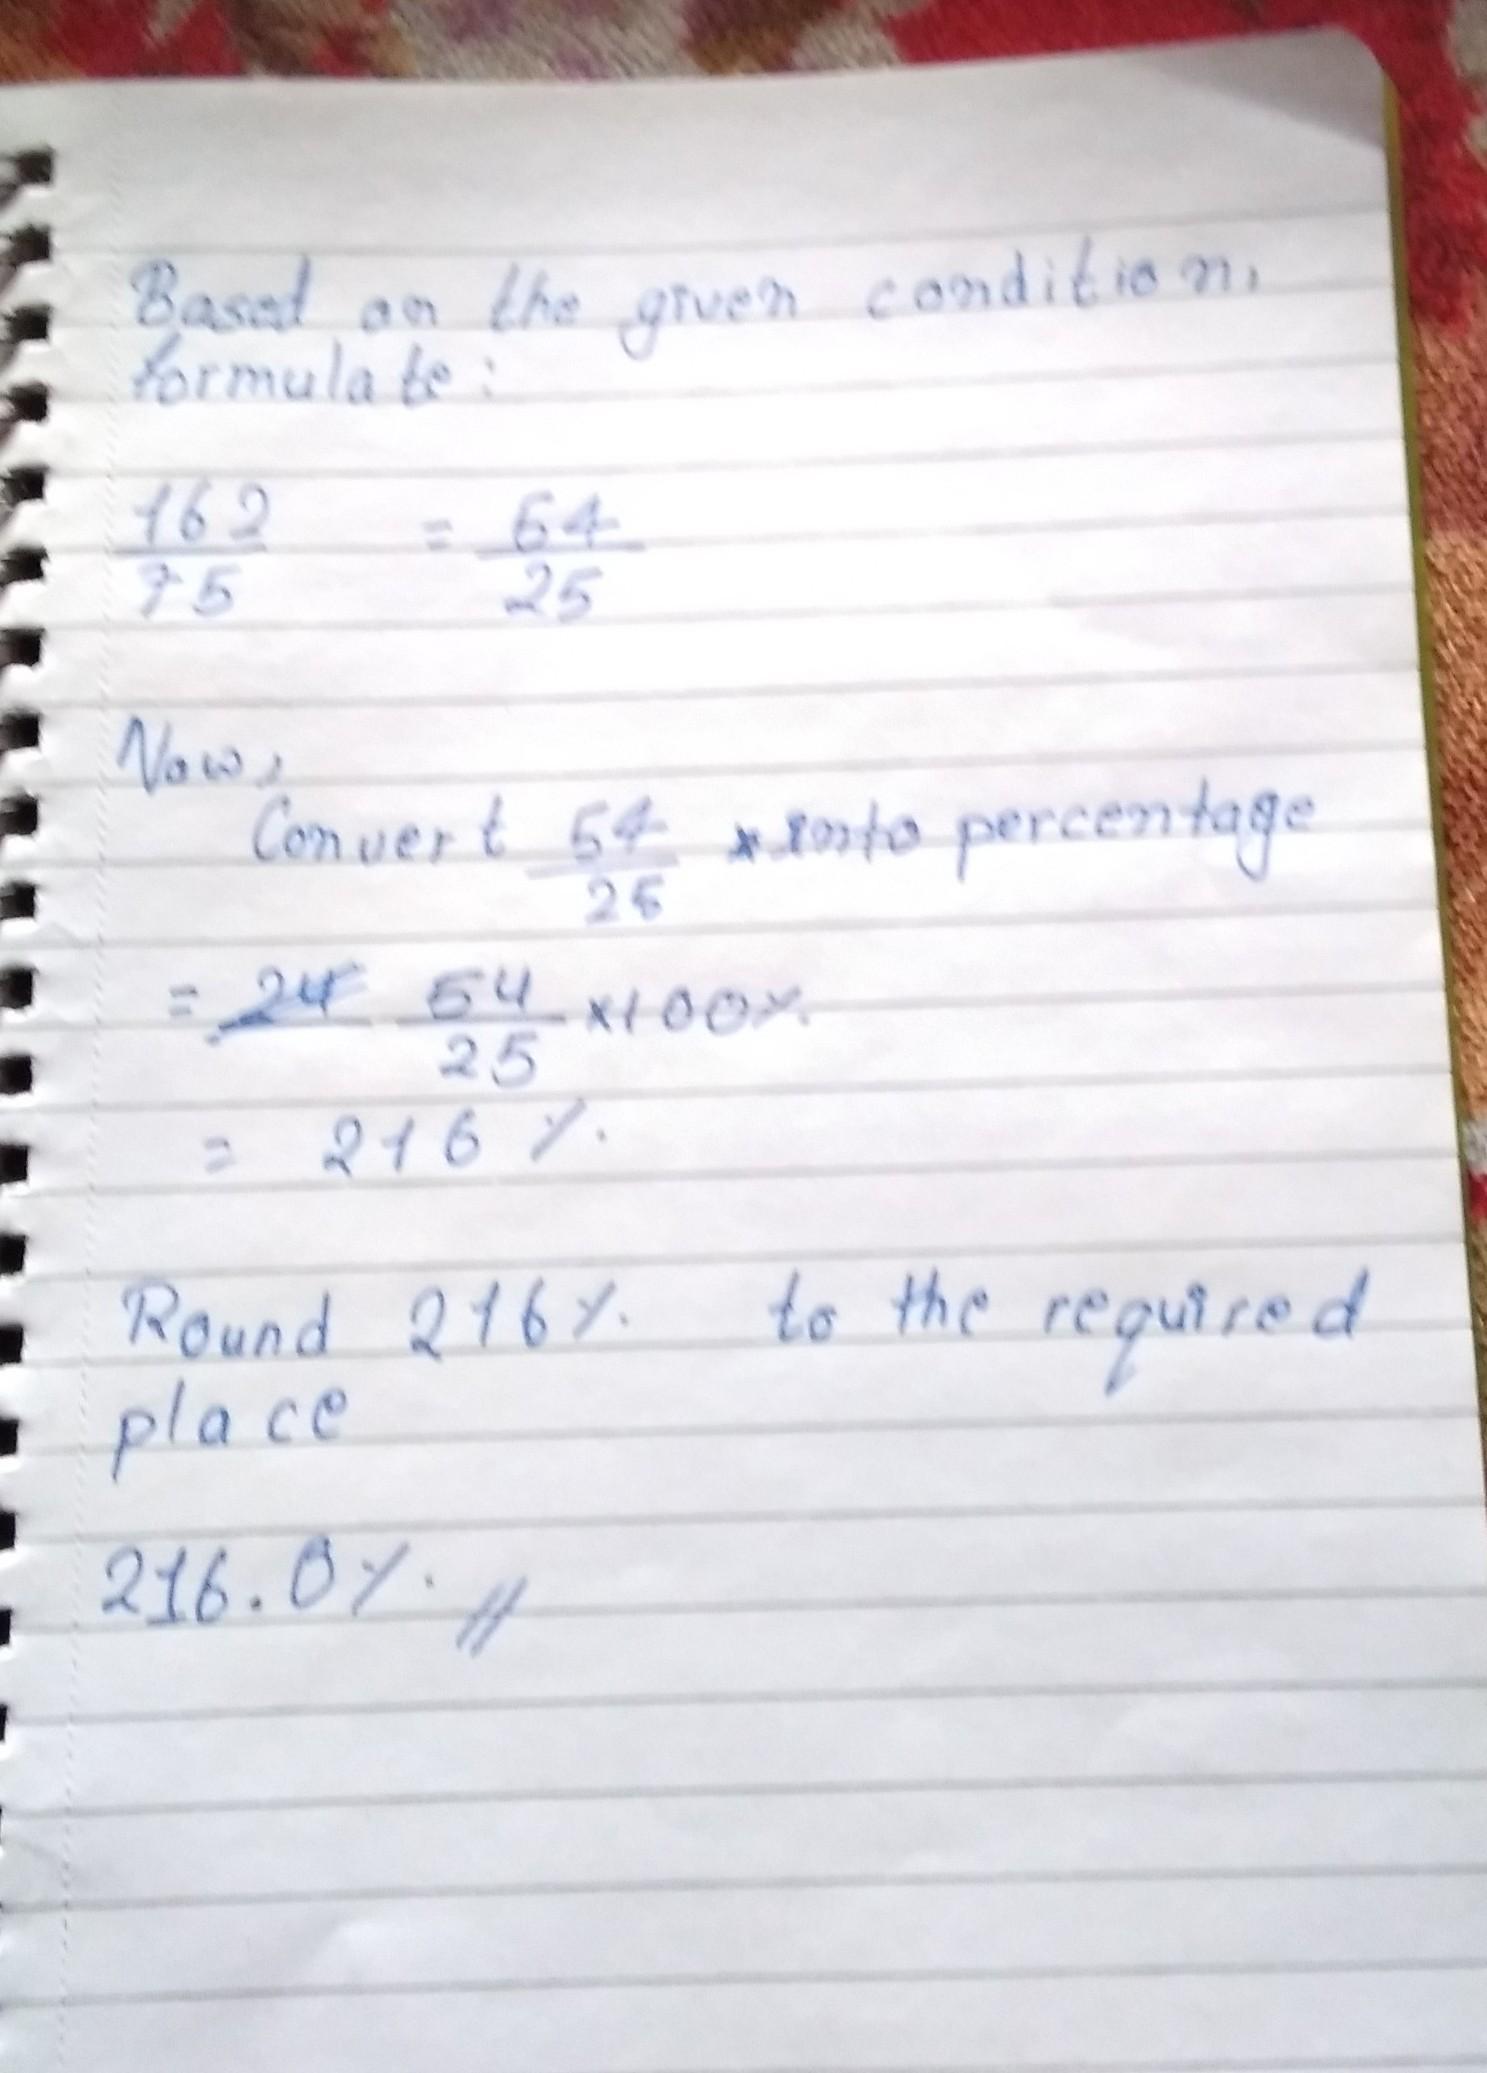 Based on the given condition,
formulate:
162/75 = 54/25
Now,
Convert 54/25 into percentage
= 54/25 ×100%
= 216 %
Round 216% to the required
place
216.0% //